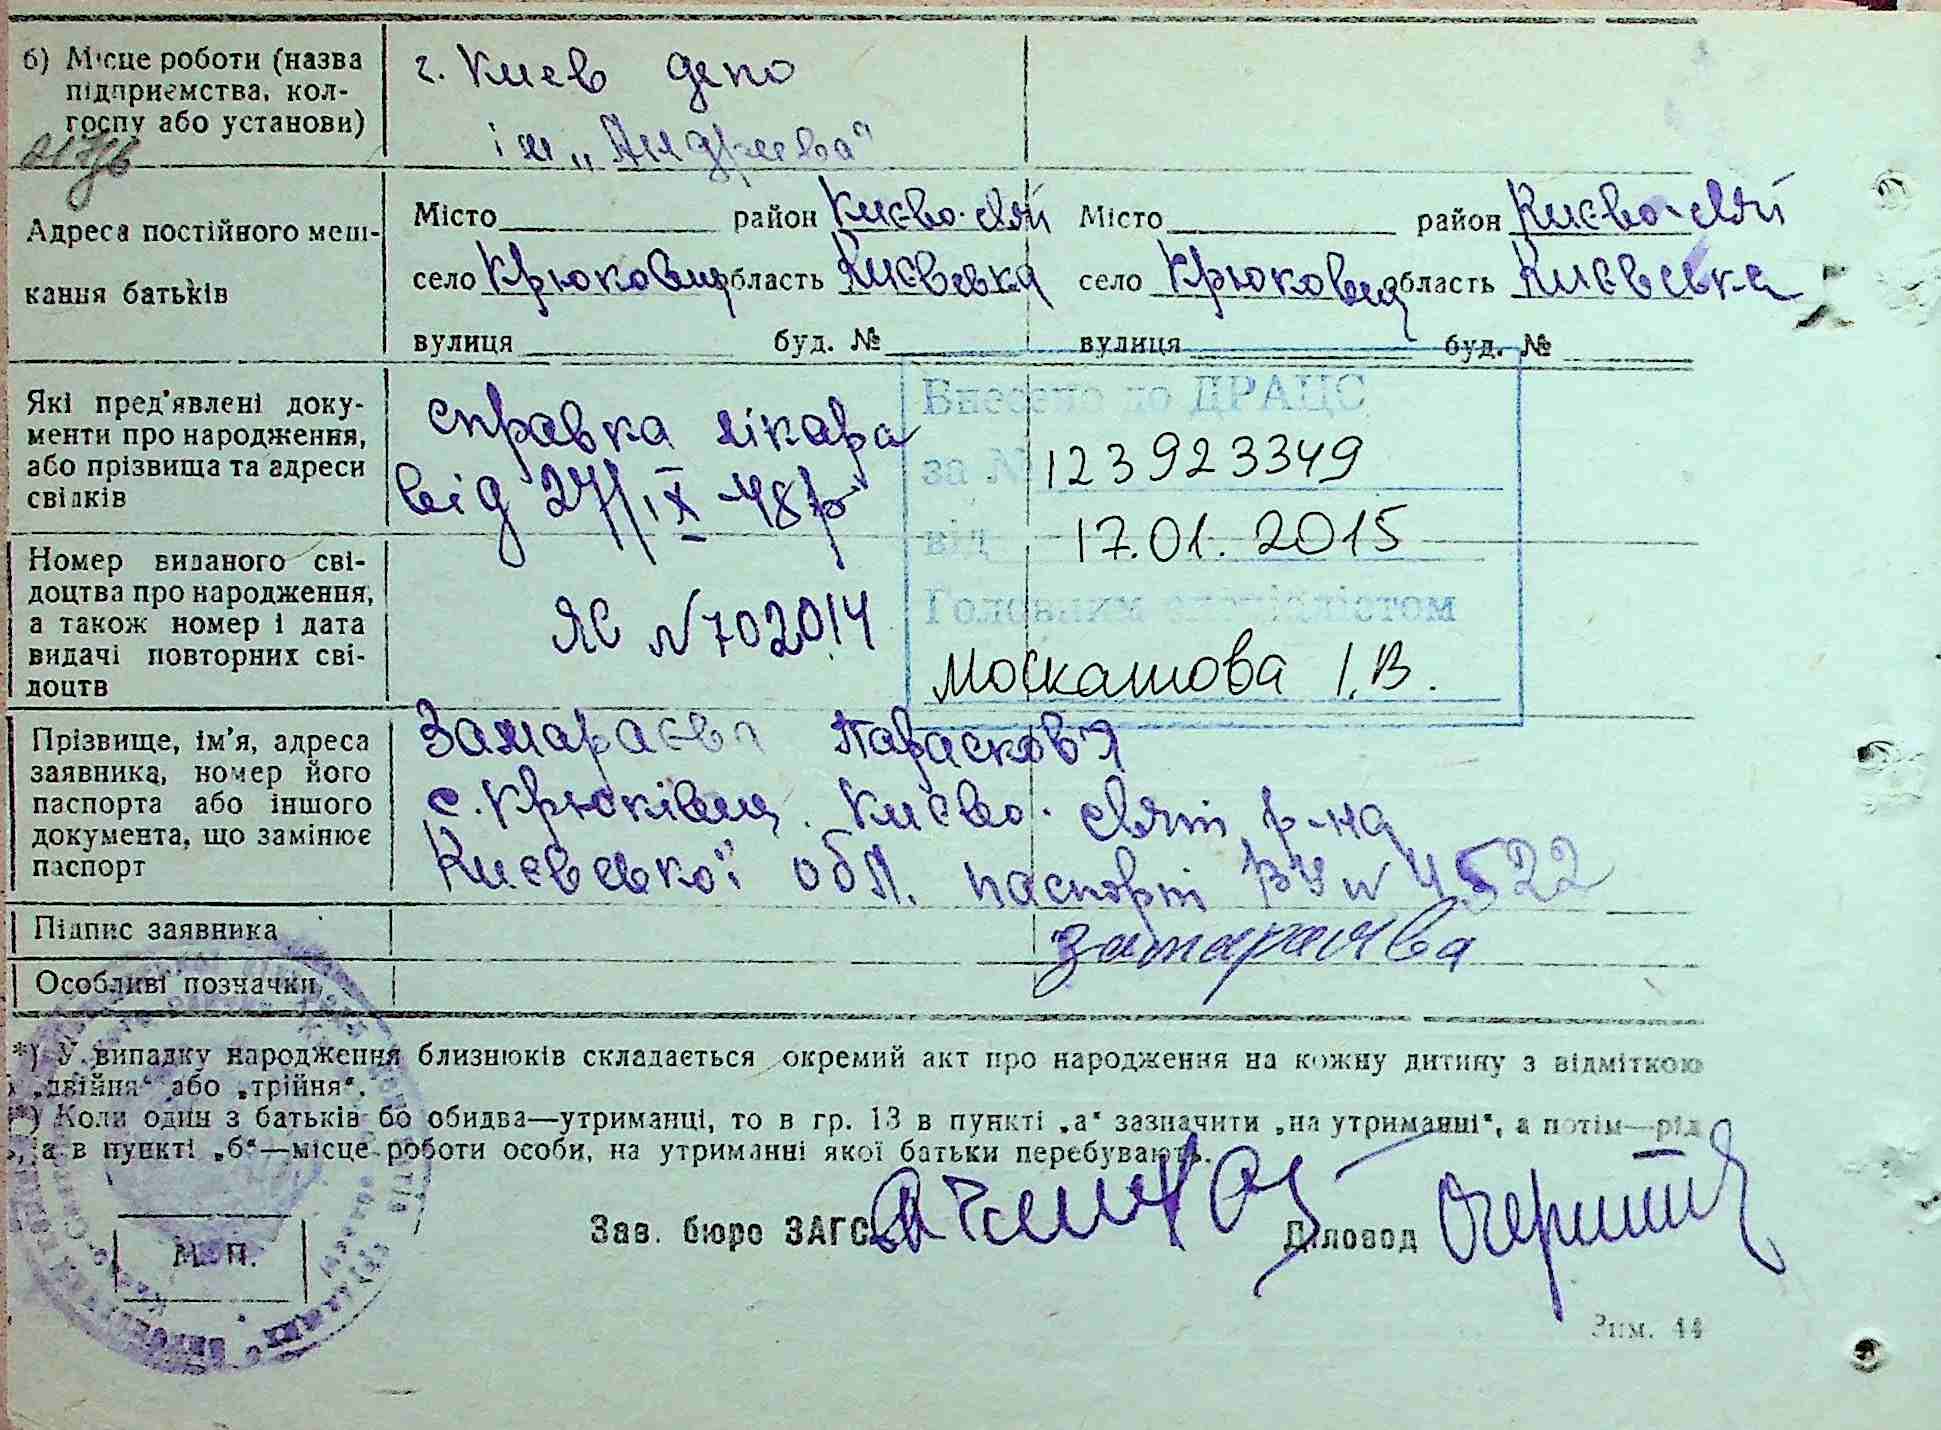 б) Місце роботи (назва
підприємства, кол-
госпу або установи)
г. Киев депо
ім „Андреева“
Адреса постійного меш-
кання батьків
Місто район Києво-свят Місто район Києво-свят
село Крюковщ область Киевська село Крюковщ область Киевська
вулиця буд. № вулиця буд. №
Які пред'явлені доку-
менти про народження,
або прізвища та адреси
свідків
справка лікара
від 27/IX 48р
Внесено до ДРАЦС
за № 123923349
від 17.01.2015
Головним спеціалістом
Москашова І.В.
Номер виданого сві-
доцтва про народження,
а також номер і дата
видачі повторних сві-
доцтв
ЯС №702014
Прізвище, ім'я, адреса
заявника, номер його
паспорта або іншого
документа, що замінює
паспорт
Замараєва Парасков'я
с. Крюківщ. Києво-свят р-на
Киевської обл. паспорт №4522
Підпис заявника
Замараєва
Особливі позначки
*) У випадку народження близнюків складається окремий акт про народження на кожну дитину з відміткою
„двійня“ або „трійня“.
*) Коли один з батьків бо обидва—утриманці, то в гр. 13 в пункті „а“ зазначити „на утриманні“, а потім—рід
а в пункті „б“—місце роботи особи, на утриманні якої батьки перебувають.
Зав. бюро ЗАГС Діловод
М. П.
Зим. 44